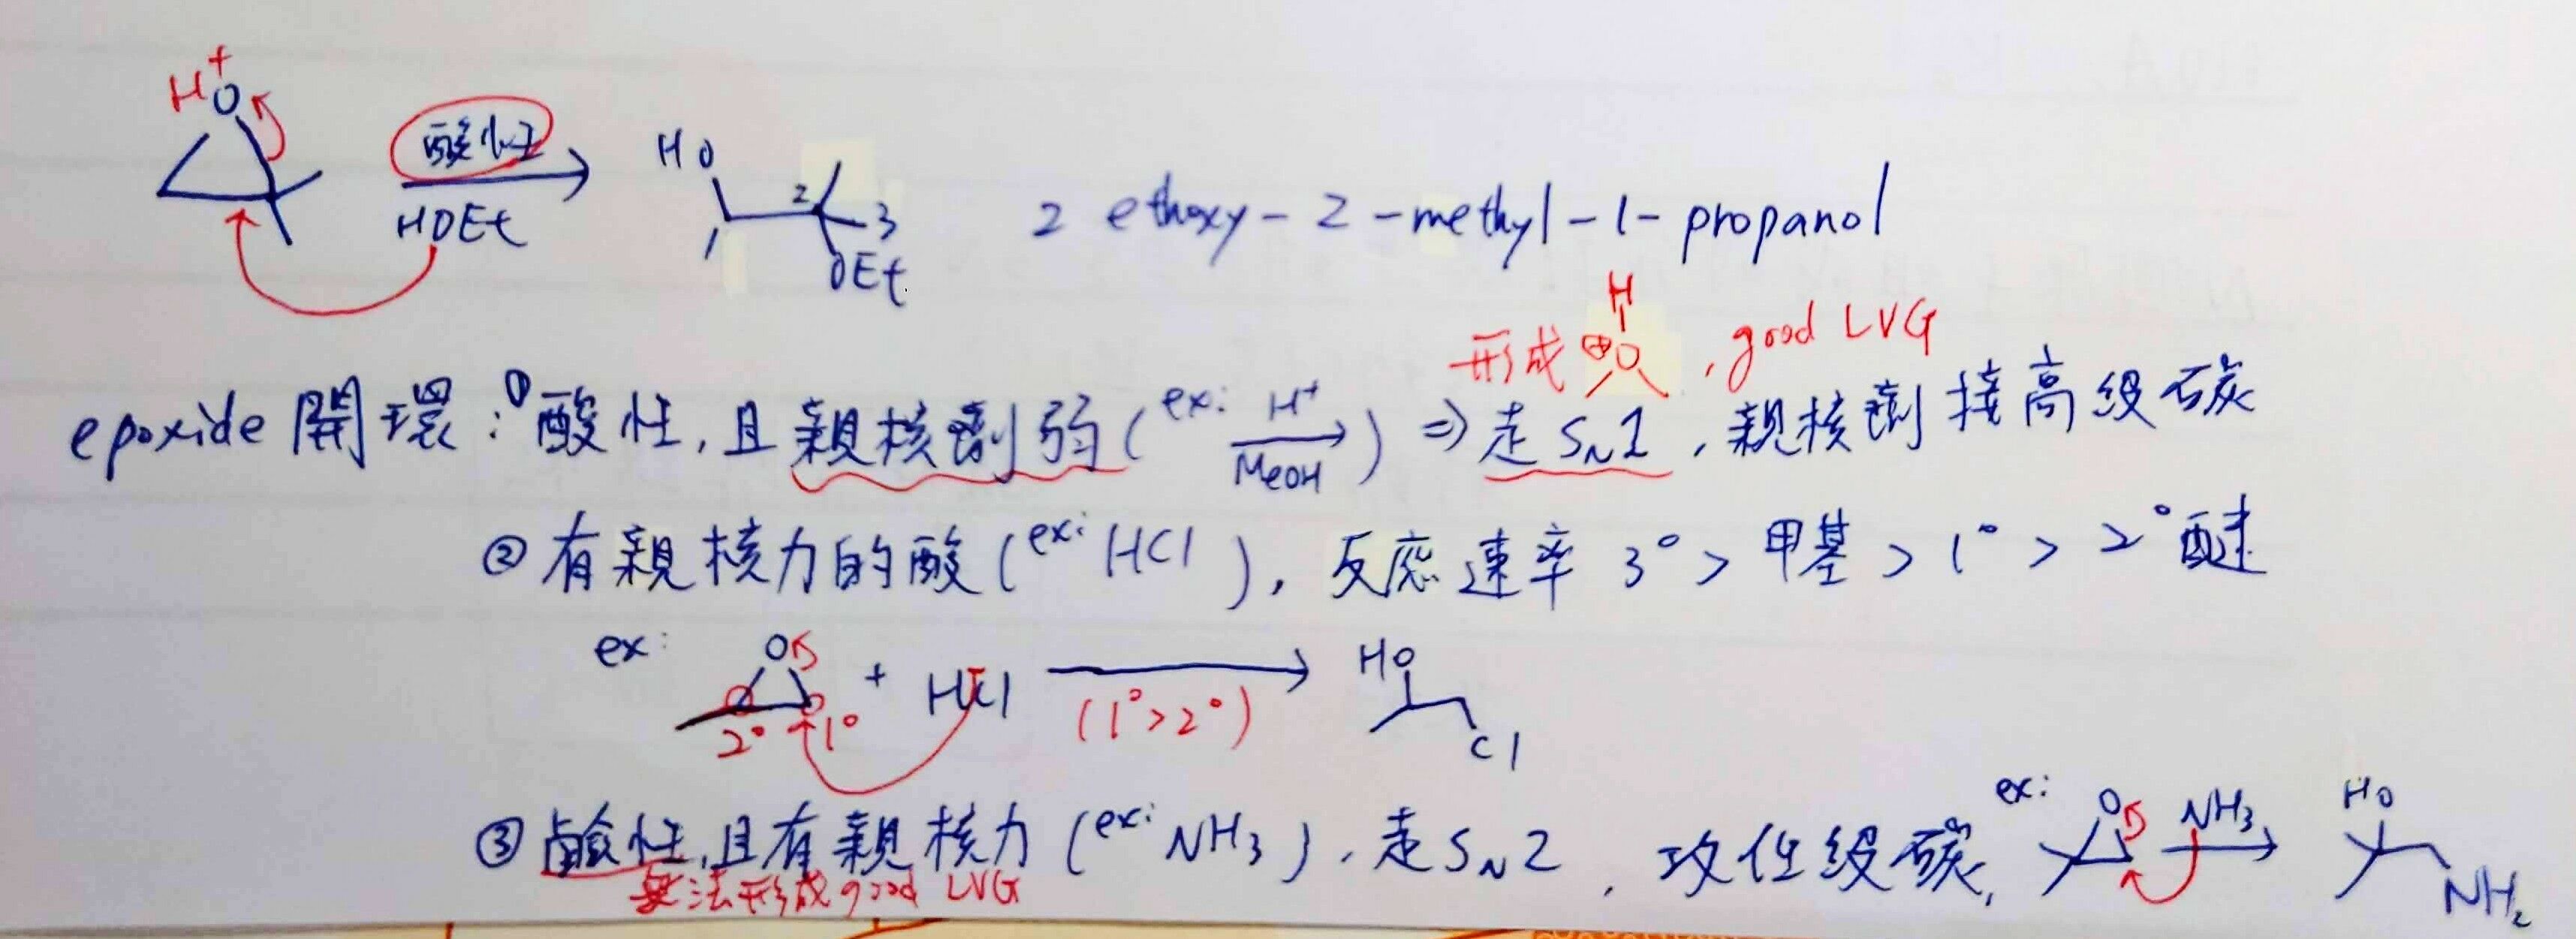 H+
O
酸性
HOEt
HO
2
1
3
OEt
2 ethoxy-2-methyl-1-propanol
形成 ⊕O H , good LVG
epoxide 開環：①酸性, 且親核劑弱 (ex: H+ MeOH) ⇒ 走 SN1 , 親核劑接高級碳
②有親核力的酸 (ex: HCl ), 反應速率 3° > 甲基 > 1° > 2° 醚
ex: O 2° 1° + HCl (1°>2°) HO Cl
③鹼性, 且有親核力 (ex: NH3), 走 SN2 , 攻低級碳, ex: O NH3 HO NH2
無法形成 good LVG